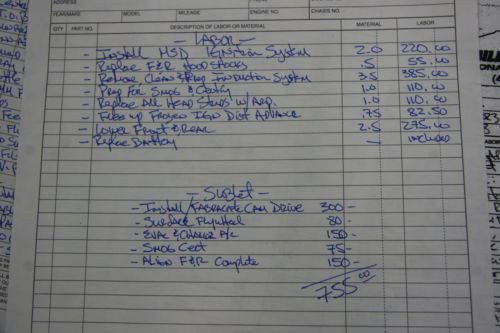 ADDRESS
YEAR/MAKE MODEL MILEAGE ENGINE NO. CHASSIS NO.
QTY PART NO. DESCRIPTION OF LABOR OR MATERIAL MATERIAL LABOR
- LABOR -
- Install MSD Ignition System 2.0 220.00
- Replace F&R Hood Shocks .5 55.00
- Remove Clean & Prep Induction System 3.5 385.00
- Prep For Smog & Certify 1.0 110.00
- Replace All Head Studs W/ARP. 1.0 110.00
- Free up Frozen IGN Dist Advance .75 82.50
- Lower Front & Rear 2.5 275.00
- Replace Battery — included
- Sublet -
- Install/Fabricate Cam Drive 300-
- Surface Flywheel 80-
- Evac & Charge A/C 150-
- Smog Cert 75-
- Align F&R Complete 150-
755.00